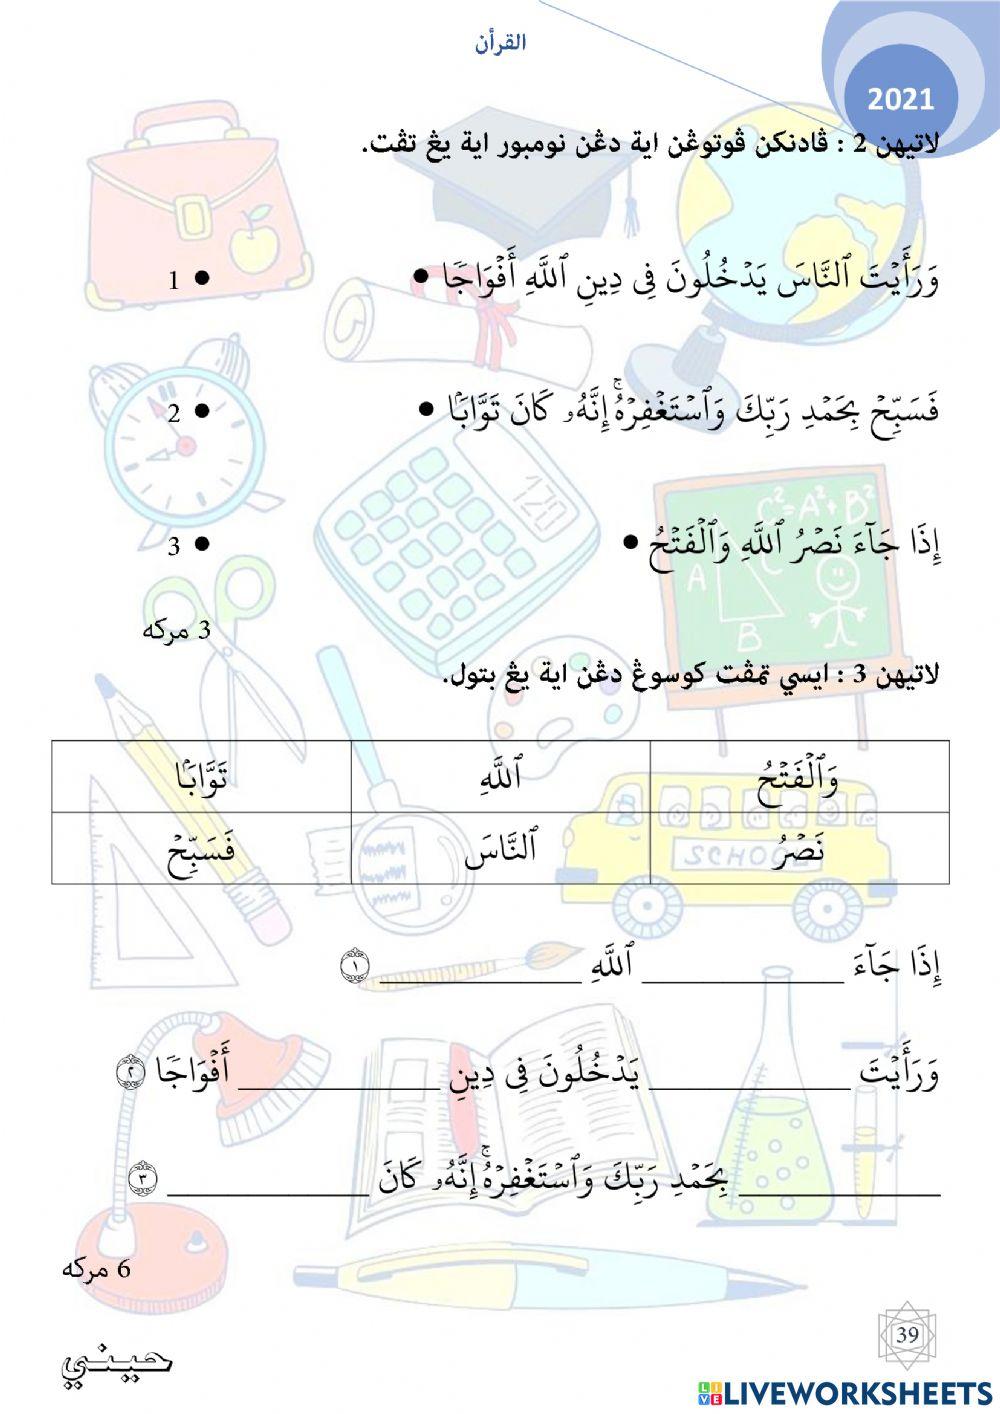 القرأن
2021
لاتيهن 2 : ڤادنكن ڤوتوڠن اية دڠن نومبور اية يڠ تڤت.
وَرَأَيۡتَ ٱلنَّاسَ يَدۡخُلُونَ فِى دِينِ ٱللَّهِ أَفۡوَاجٗا ● ● 1
فَسَبِّحۡ بِحَمۡدِ رَبِّكَ وَٱسۡتَغۡفِرۡهُۚ إِنَّهُۥ كَانَ تَوَّابَۢا ● ● 2
إِذَا جَآءَ نَصۡرُ ٱللَّهِ وَٱلۡفَتۡحُ ● ● 3
3 مركه
لاتيهن 3 : ايسي تمڤت كوسوڠ دڠن اية يڠ بتول.
وَٱلۡفَتۡحُ ٱللَّهِ تَوَّابَۢا
نَصۡرُ ٱلنَّاسَ فَسَبِّحۡ
إِذَا جَآءَ ____________ ٱللَّهِ ____________ ١
وَرَأَيۡتَ ____________ يَدۡخُلُونَ فِى دِينِ ____________ أَفۡوَاجٗا ٢
____________ بِحَمۡدِ رَبِّكَ وَٱسۡتَغۡفِرۡهُۚ إِنَّهُۥ كَانَ ____________ ٣
6 مركه
39
حيبني
LIVEWORKSHEETS